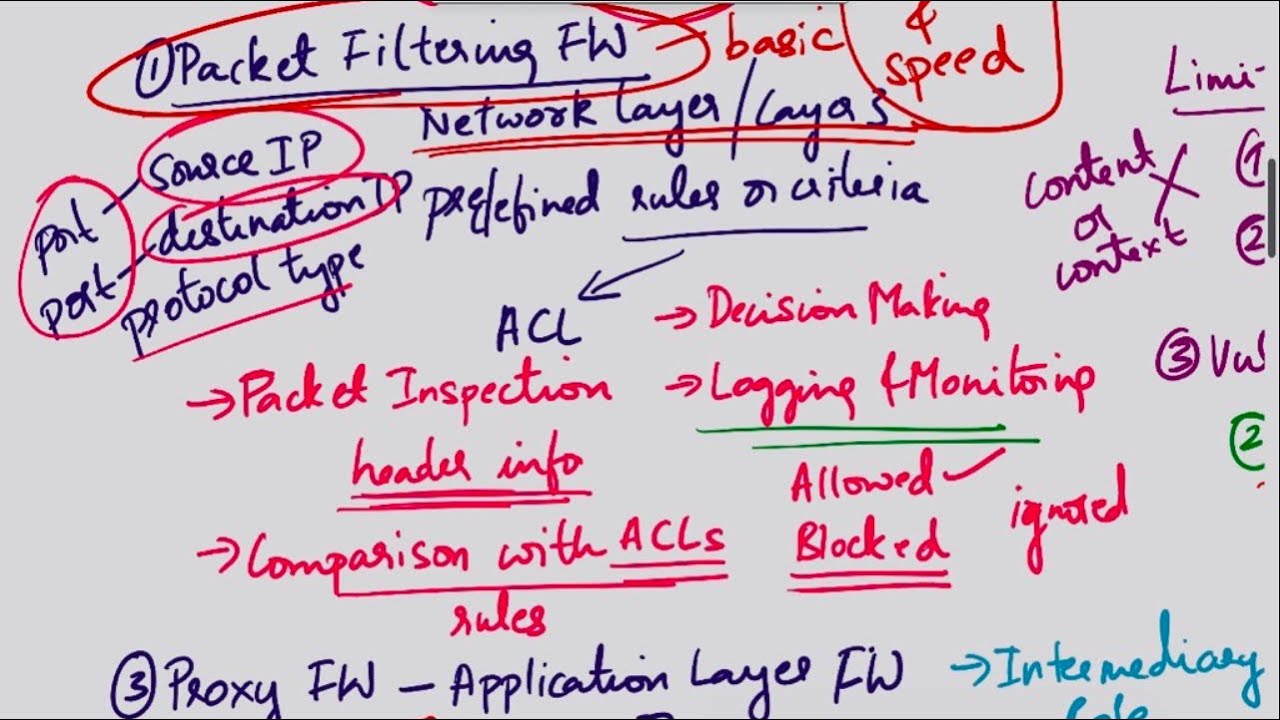 ① Packet Filtering FW — basic
& speed
Network layer / Layer 3
Source IP
destination IP
port
port
protocol type
predefined rules or criteria
ACL
→ Packet Inspection
header info
→ Comparison with ACLs
rules
→ Decision Making
→ Logging & Monitoring
Allowed ✓
Blocked
ignored
Limi-
content
or
context
①
②
③ Vul
②
③ Proxy FW – Application Layer FW → Intermediary